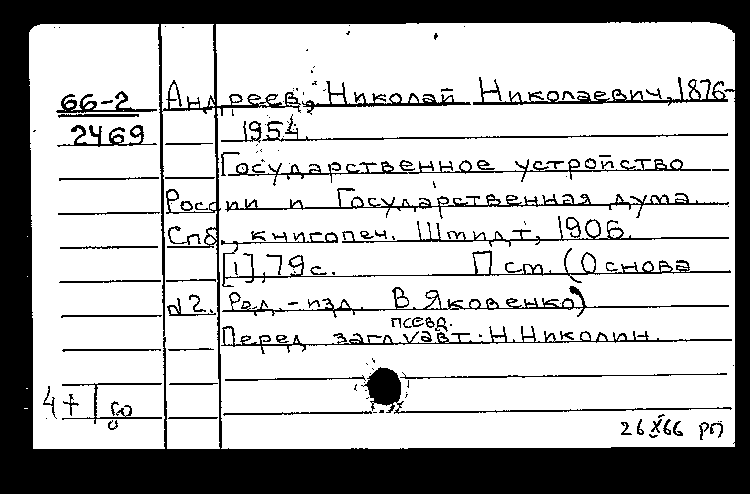 66-2 Андреев, Николай Николаевич, 1876-
2469 1954.
Государственное устройство
России и Государственная дума.
Спб., книгопеч. Шмидт, 1906.
[1], 79 с. П ст. (Основа
№2. Ред.-изд. В. Яковенко)
псевд.
Перед загл. авт.: Н. Николин.
4 + 1
26 X 66 рп